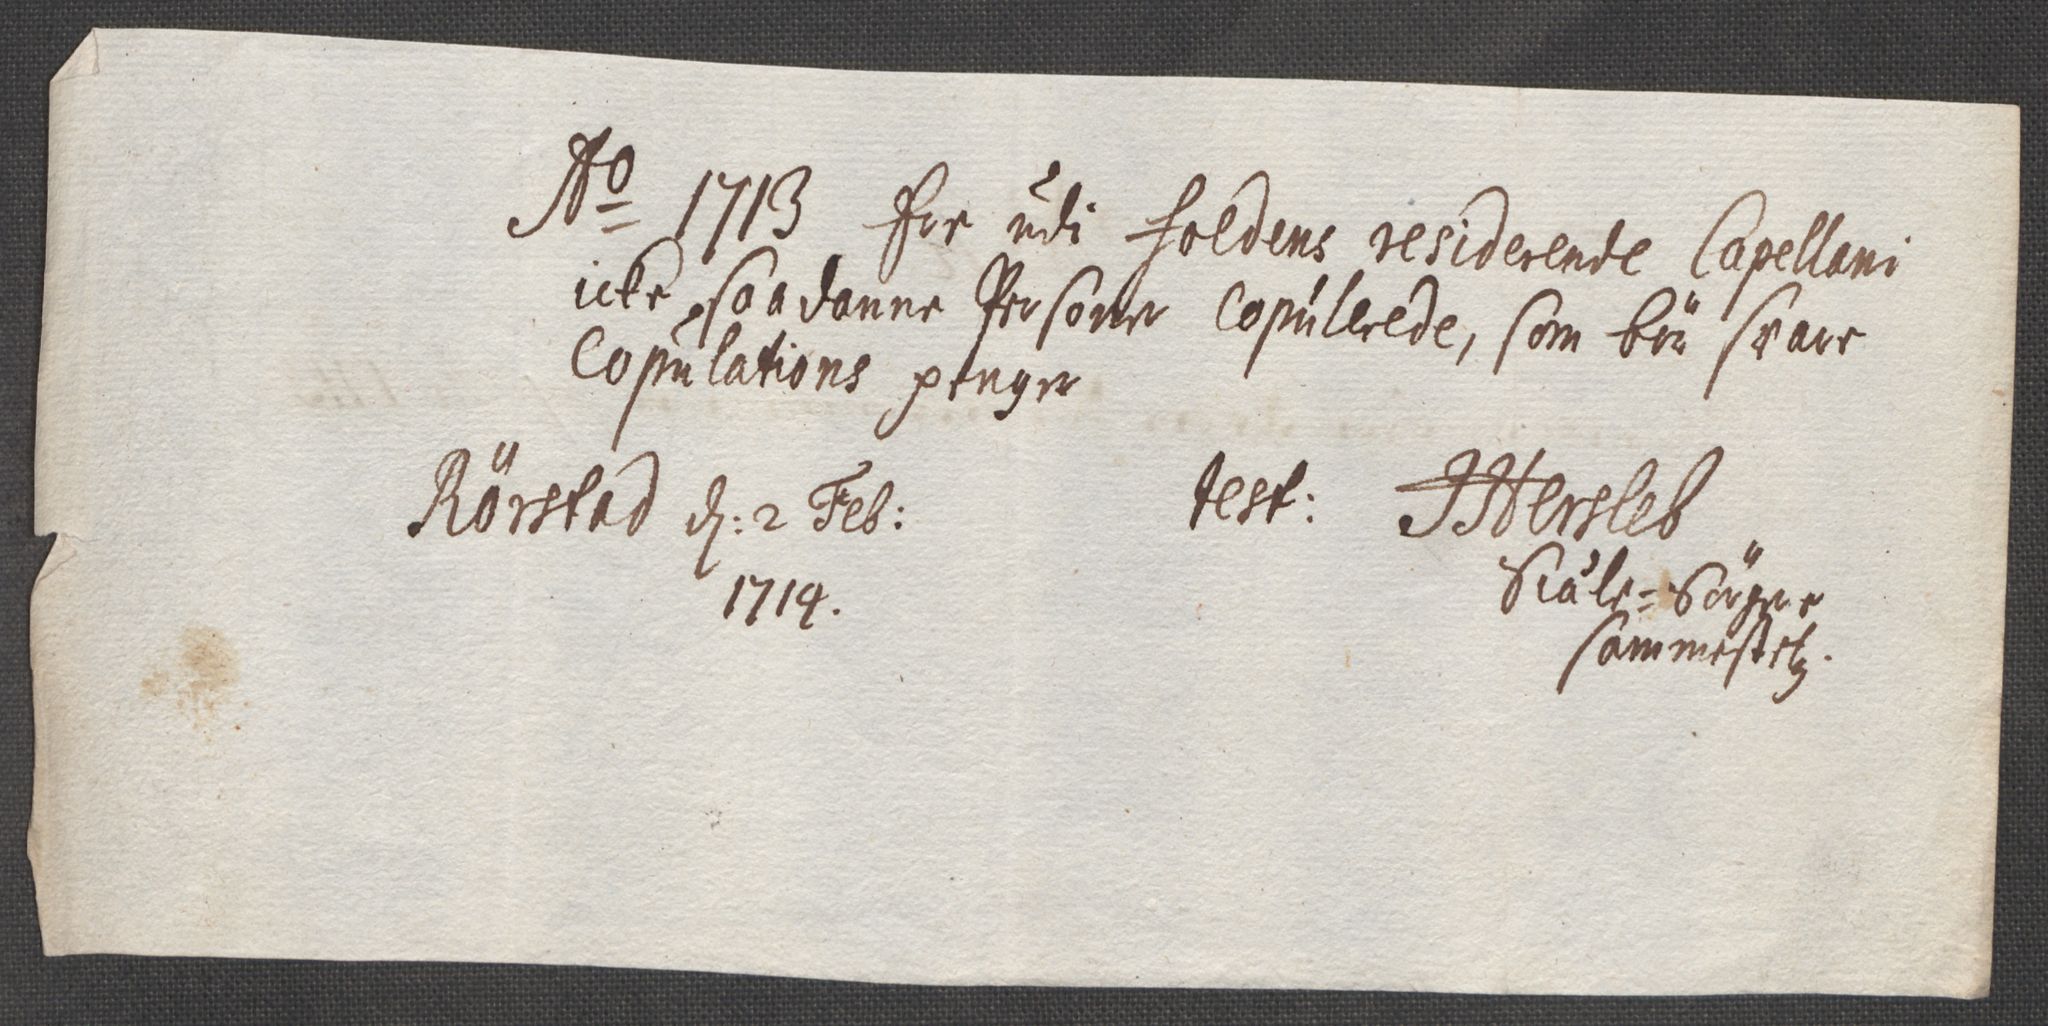 Ao 1713 Ere udi foldens residerende Capellani
icke saadanne Personer Copulerede, som bör svare
Copulations penger
Rörstad d: 2 Feb:
1714.
test: JHersleb
Siæle-Sörger
sammestetz.